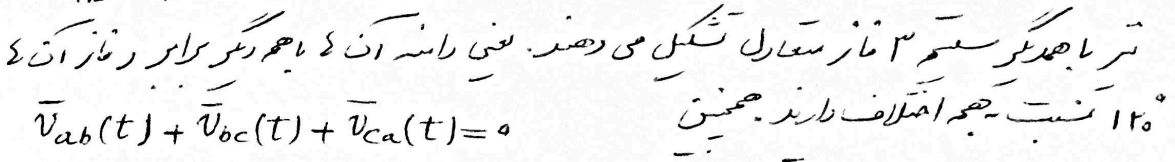 نیز با همدیگر سیستم ۳ فاز متعادل تشکیل می دهند. یعنی دامنه آن ها با همدیگر برابر و فاز آن ها
۱۲۰° نسبت به هم اختلاف دارند. همچنین v̅ab(t) + v̅bc(t) + v̅ca(t) = 0